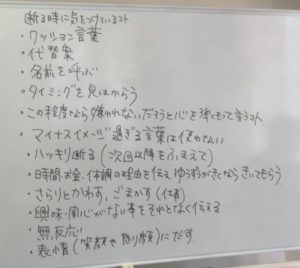 断る時に気をつけているコト
・クッション言葉
・代替案
・名前を呼ぶ
・タイミングを見はからう
・この程度なら嫌われないだろうと心を強くもって言うコト
・マイナスイメージ過ぎる言葉は使わない
・ハッキリ断る(次回以降をふまえて)
・時間、お金、体調の理由を伝え ゆうずうがきくなら きいてもらう
・さらりとかわす、ごまかす(仕事)
・興味・関心がない事をそれとなく伝える
・無反応
・表情(笑顔や怒り顔)にだす